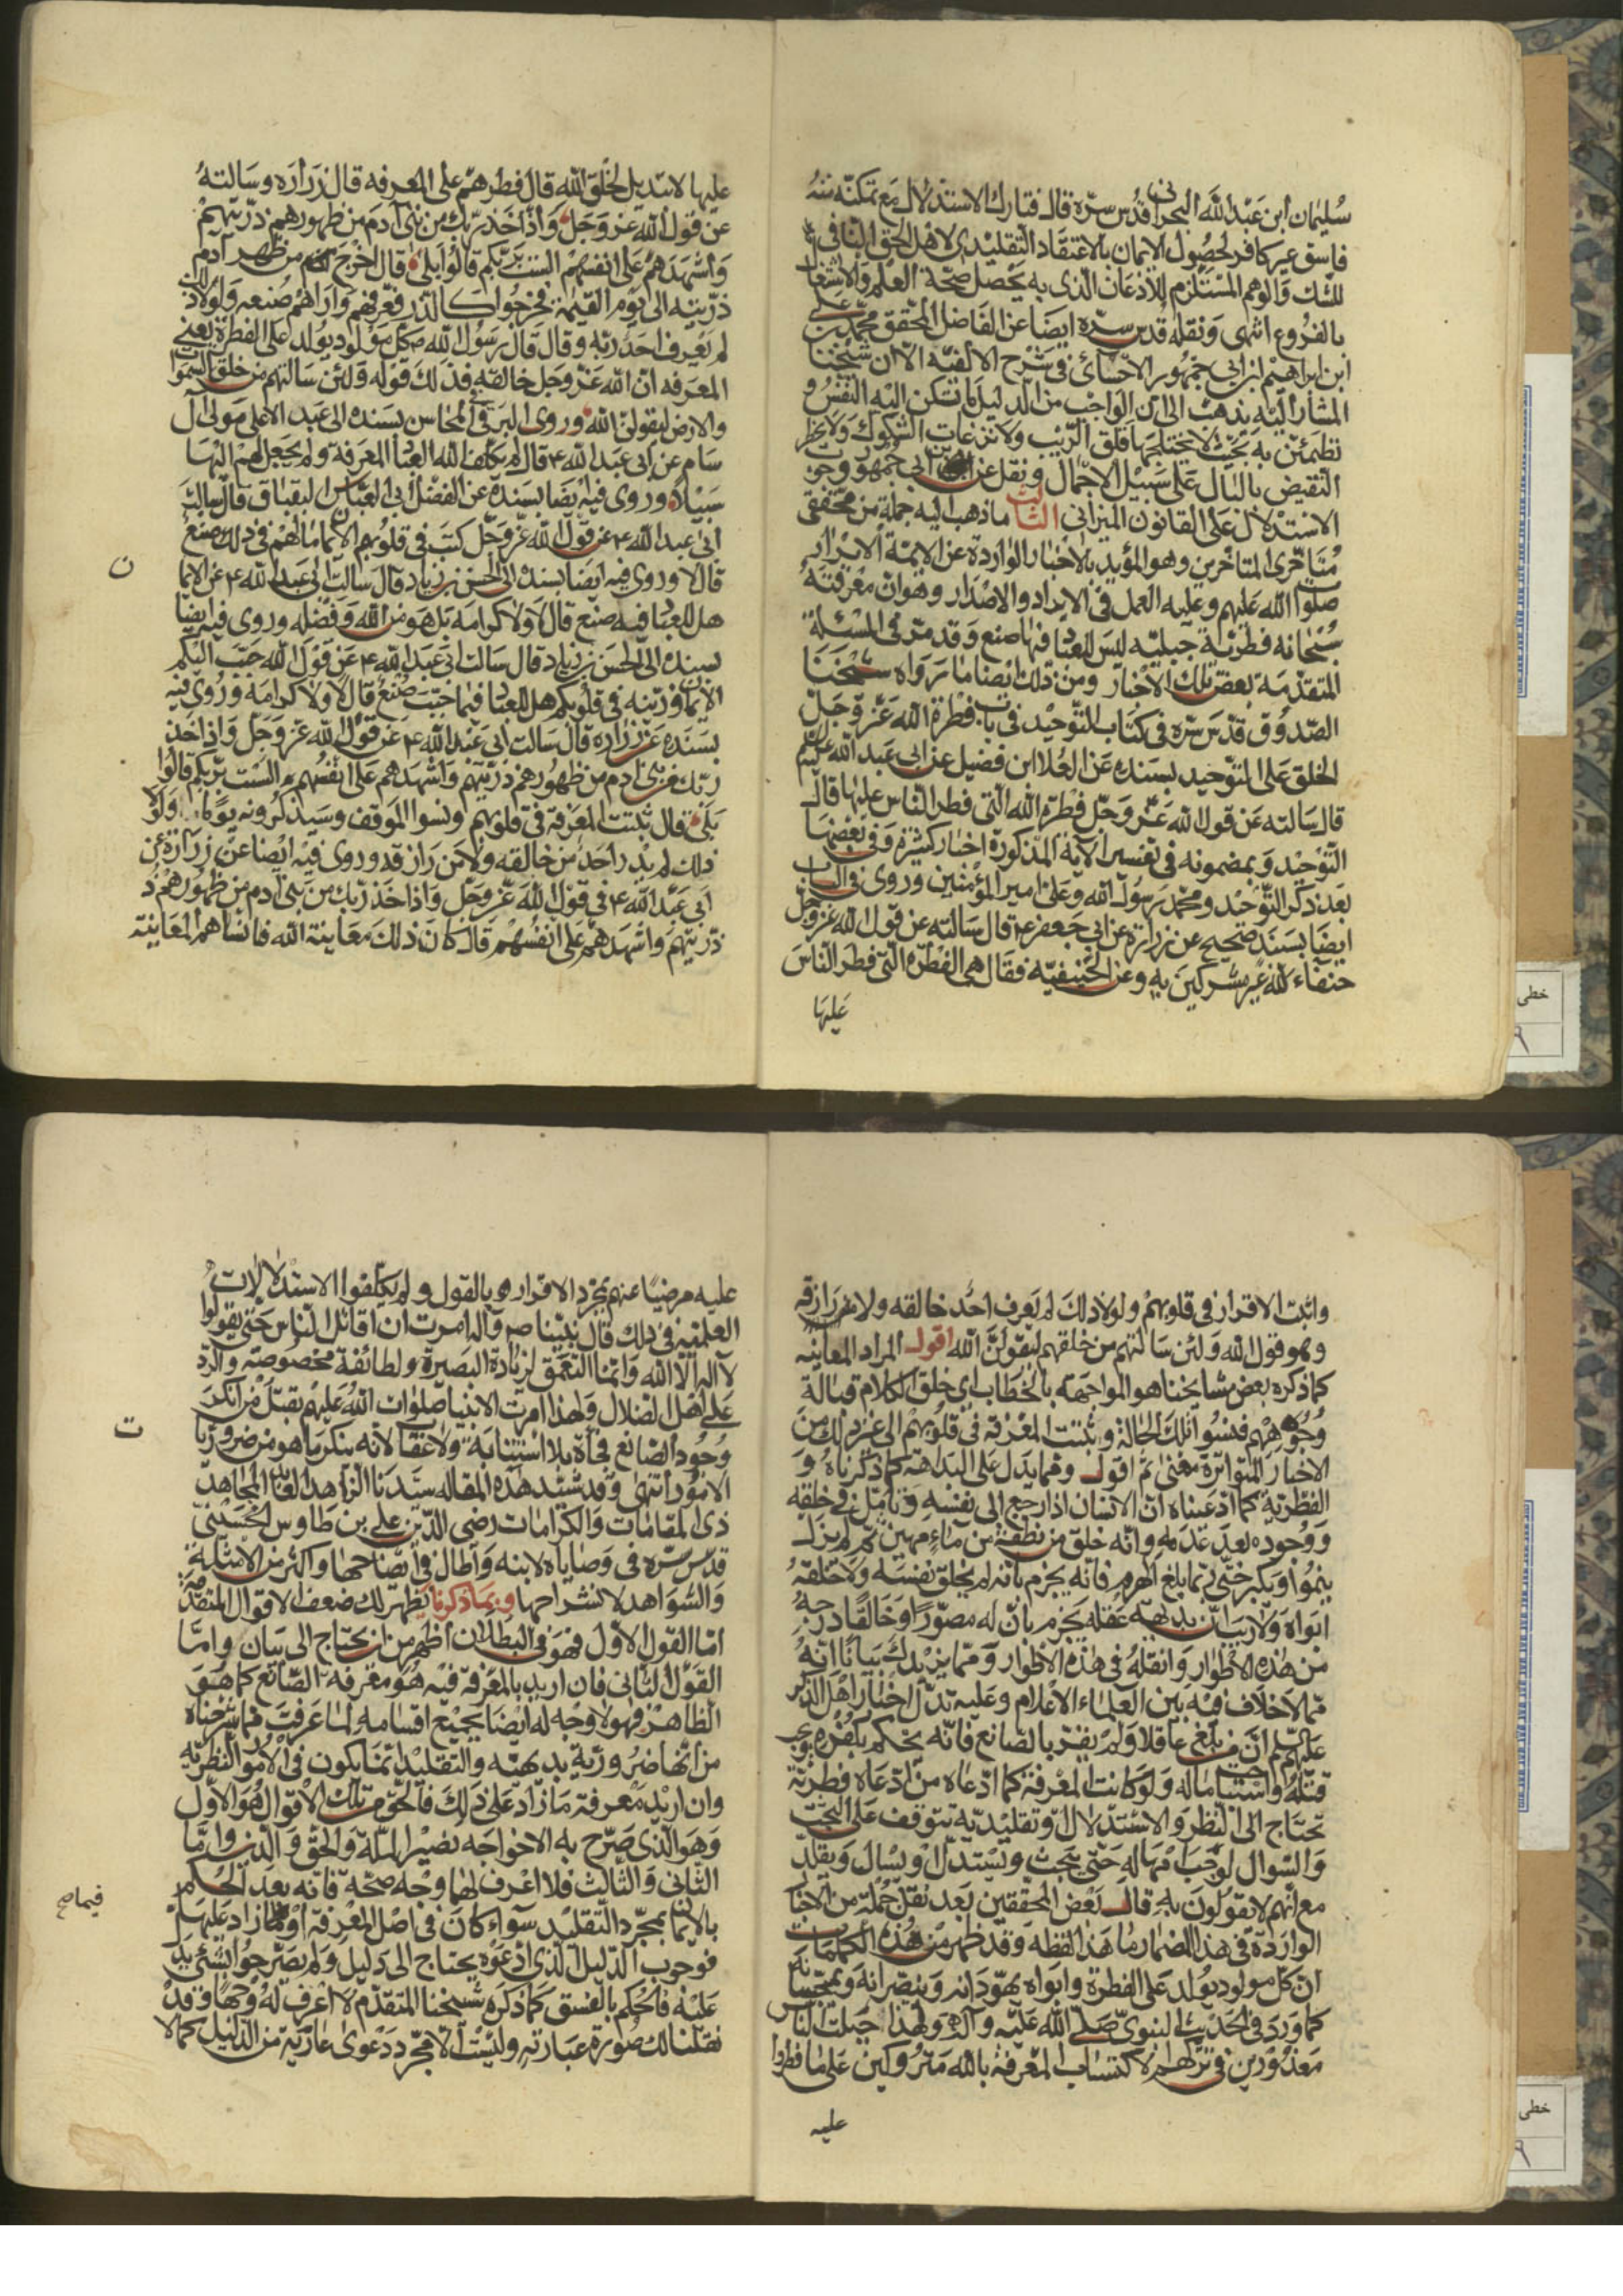 سليمان ابن عبد الله البحراني قدس سره قال فتارك الاستدلال مع تمكنه منه
فاسق غير كافر لحصول الايمان بالاعتقاد التقليدي لاهل الحق النافي
للشك والوهم المستلزم للاذعان الذي به يحصل صحة العلم والاشتغال
بالفروع انتهى ونقله قدس سره ايضا عن الفاضل المحقق محمد بن علي
ابن ابراهيم بن ابي جمهور الاحسائي في شرح الالفية الا ان شيخنا
المشار اليه يذهب الى ان الواجب من الدليل ما تسكن اليه النفس و
تطمئن به بحيث لا يختلجها قلق الريب ولا نزغات الشكوك ولا يخطر
النقيض بالبال على سبيل الاجمال ونقل عن ابن ابي جمهور وجوب
الاستدلال على القانون الميزاني الثالث ما ذهب اليه جملة من محققي
متاخري المتاخرين وهو المؤيد بالاخبار الواردة عن الائمة الابرار
صلوات الله عليهم وعليه العمل في الايراد والاصدار وهو ان معرفته
سبحانه فطرية جبلية ليس للعباد فيها صنع وقد مر في المسئلة
المتقدمة بعض تلك الاخبار ومن ذلك ايضا ما رواه شيخنا
الصدوق قدس سره في كتاب التوحيد في باب فطرة الله عز وجل
الخلق على التوحيد بسنده عن العلا ابن فضيل عن ابي عبد الله عليه السلام
قال سالته عن قول الله عز وجل فطرة الله التي فطر الناس عليها قال
التوحيد وبمضمونه في تفسير الاية المذكورة اخبار كثيرة وفي بعضها
بعد ذكر التوحيد ومحمد رسول الله وعلي امير المؤمنين وروى في الباب
ايضا بسند صحيح عن زرارة عن ابي جعفر ع قال سالته عن قول الله عز وجل
حنفاء لله غير مشركين به وعن الحنيفية فقال هي الفطرة التي فطر الناس
عليها
عليها لا تبديل لخلق الله قال فطرهم على المعرفه قال زرارة وسالته
عن قول الله عز وجل واذ اخذ ربك من بني آدم من ظهورهم ذريتهم
واشهدهم على انفسهم الست بربكم قالوا بلى قال اخرج من ظهر آدم
ذريته الى يوم القيمة فخرجوا كالذر فعرفهم واراهم صنعه ولولا ذلك
لم يعرف احد ربه وقال قال رسول الله ص كل مولود يولد على الفطرة يعني
المعرفه ان الله عز وجل خالقه فذلك قوله ولئن سالتهم من خلق السموات
والارض ليقولن الله وروى البرقي في المحاسن بسنده الى عبد الاعلى مولى آل
سام عن ابي عبد الله ع قال لم يكلف الله العباد المعرفة ولم يجعل لهم اليها
سبيلا وروى فيه ايضا بسنده عن الفضل ابي العباس البقباق قال سالت
ابي عبد الله ع عن قول الله عز وجل كتب في قلوبهم الايمان ما لهم في ذلك صنع
قال لا وروى فيه ايضا بسنده الى الحسن بن زياد قال سالت ابي عبد الله ع عن الايمان
هل للعباد فيه صنع قال لا ولا كرامة بل هو من الله وفضله وروى فيه ايضا
بسنده الى الحسن بن زياد قال سالت ابي عبد الله ع عن قول الله حبب اليكم
الايمان وزينه في قلوبكم هل للعباد فيما حبب صنع قال لا ولا كرامة وروى فيه
بسنده عن زرارة قال سالت ابي عبد الله ع عن قول الله عز وجل واذ اخذ
ربك من بني آدم من ظهورهم ذريتهم واشهدهم على انفسهم الست بربكم قالوا
بلى قال ثبتت المعرفة في قلوبهم ونسوا الموقف وسيذكرونه يوما ولولا
ذلك لم يدر احد من خالقه ولا من رازقه وروى فيه ايضا عن زرارة عن
ابي عبد الله ع في قول الله عز وجل واذ اخذ ربك من بني آدم من ظهورهم
ذريتهم واشهدهم على انفسهم قال كان ذلك معاينة الله فانساهم المعاينة
ن
واثبت الاقرار في قلوبهم ولولا ذلك لم يعرف احد خالقه ولا رازقه
وهو قول الله ولئن سالتهم من خلقهم ليقولن الله اقول المراد المعاينه
كما ذكره بعض مشايخنا هو المواجهة بالخطاب اي خلق الكلام قبالة
وجوههم فنسوا تلك الحالة وثبتت المعرفة في قلوبهم الى غير ذلك من
الاخبار المتواترة معنى ثم اقول ومما يدل على البداهة كما ذكرناه و
الفطرية كما ادعيناه ان الانسان اذا رجع الى نفسه وتامل في خلقه
ووجوده بعد عدمه وانه خلق من نطفة من ماء مهين ثم لم يزل
ينموا ويكبر حتى ربما بلغ الهرم فانه يجزم بانه لم يخلق نفسه ولا خلقه
ابواه ولا ريب ان بديهة عقله يجزم بان له مصورا وخالقا درجه
من هذه الاطوار وانقله في هذه الاطوار ومما يزيدك بيانا انه
مما لا خلاف فيه بين العلماء الاعلام وعليه تدل اخبار اهل الذكر
عليهم السلم ان من بلغ عاقلا ولم يقر بالصانع فانه يحكم بكفره ويجب
قتله واستباحت ماله ولو كانت المعرفة كما ادعاه من ادعاه فطرية
تحتاج الى النظر والاستدلال او تقليدية تتوقف على البحث
والسؤال لوجب امهاله حتى يبحث ويستدل او يسال ويقلد
مع انهم لا يقولون به قال بعض المحققين بعد نقل جملة من الاخبار
الواردة في هذا المضمار ما هذا لفظه وقد ظهر من هذه الكلمات
ان كل مولود يولد على الفطرة وابواه يهودانه وينصرانه ويمجسانه
كما ورد في الحديث النبوي صلى الله عليه وآله ولهذا جبلت الناس
معذورين في تركهم اكتساب المعرفة بالله متروكين على ما فطروا
عليه
عليه مرضيا عنهم بمجرد الاقرار بالقول ولم يكلفوا الاستدلالات
العلمية في ذلك قال نبينا ص وآله امرت ان اقاتل الناس حتى يقولوا
لا اله الا الله وانما التعمق لزيادة البصيرة ولطائفة مخصوصة والرد
على اهل الضلال ولهذا امرت الانبيا صلوات الله عليهم بقتل من انكر
وجود الصانع فجأة بلا استتابة ولا عقاب لانه ينكر ما هو من ضروريات
الامور انتهى وقد شيد هذه المقاله سيدنا الزاهد العابد المجاهد
ذي المقامات والكرامات رضي الدين علي بن طاوس الحسيني
قدس سره في وصاياه لابنه واطال في ايضاحها واكثر من الامثلة
والشواهد لانشراحها وبما ذكرنا يظهر لك ضعف الاقوال المتقدمة
اما القول الاول فهو في البطلان اظهر من ان يحتاج الى بيان واما
القول الثاني فان اريد بالمعرفة فيه هو معرفة الصانع كما هو
الظاهر فهو لا وجه له ايضا بجميع اقسامه لما عرفت مما شرحناه
من انها ضرورية بديهية والتقليد انما يكون في الامور النظرية
وان اريد معرفة ما زاد على ذلك فالحق من تلك الاقوال هو الاول
وهو الذي صرح به الاخواجه نصير الملة والحق والدين واما
الثاني والثالث فلا اعرف لهما وجه صحة فانه بعد الحكم
بالايمان بمجرد التقليد سواء كان في اصل المعرفة او فيما زاد عليها
فوجوب الدليل الذي ادعوه يحتاج الى دليل ولم يصرحوا بشيء يدل
عليه فالحكم بالفسق كما ذكره شيخنا المتقدم لا اعرف له وجها وقد
نقلنا لك صورة عبارته وليست الا مجرد دعوى عارية من الدليل كما لا
ت
فيما صح
خطى
خطى